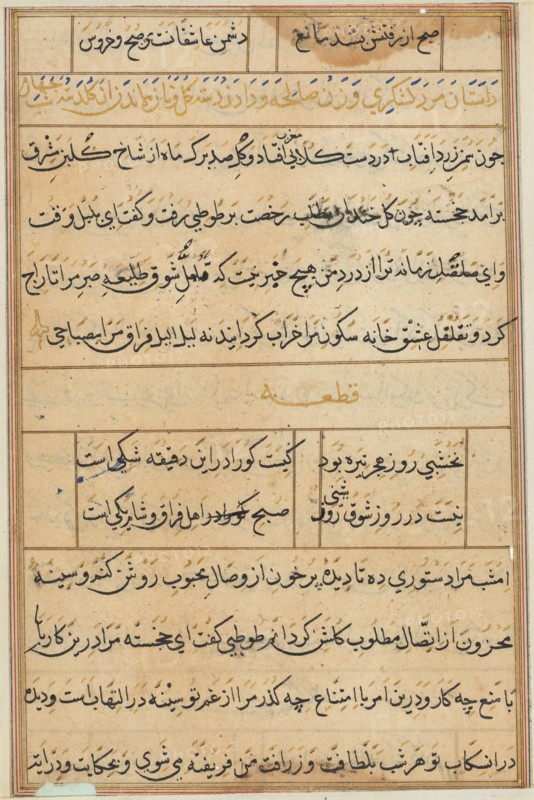 صبح از رفتنش بشد مانع
دشمن عاشقانست صبح و خروس
داستان مرد لشکری و زن صالحه و دادن دسته گل و باز ماندن آن گلدسته
چون زر آفتاب در دست کلالی مغرب افتاد و گل صد برگ ماه از شاخ گلبن مشرق
برآمد خجسته چون گل خندان طلب رخصت بر طوطی رفت و گفت ای بلبل وقت
و ای صلصل زمانه ترا از درد من هیچ خبر نیست که شوق طلیعه صبر مرا تاراج
کرد و تقلقل عشق خانه سکون مرا خراب گردانید نه لیلا لیل فراق مرا مصباحی
قطعه
نخشبی روز هجر تیره بود
کیست کورا در این دقیقه شکی است
نیست در روز شوق روشنی
صبح اهل فراق و شام یکی است
امشب مرا دستوری ده تا دیده پر خون از وصال محبوب روشن کنم و سینه
محزون از اتصال مطلوب گلشن گردانم طوطی گفت ای خجسته مرا درین کار با
با منع چه کار و درین امر با امتناع چه گذر مرا از غم تو سینه در التهاب است و دیده
در انسکاب تو هر شب بلطافت و زرافت من فریفته می شوی و بحکایت و درایت